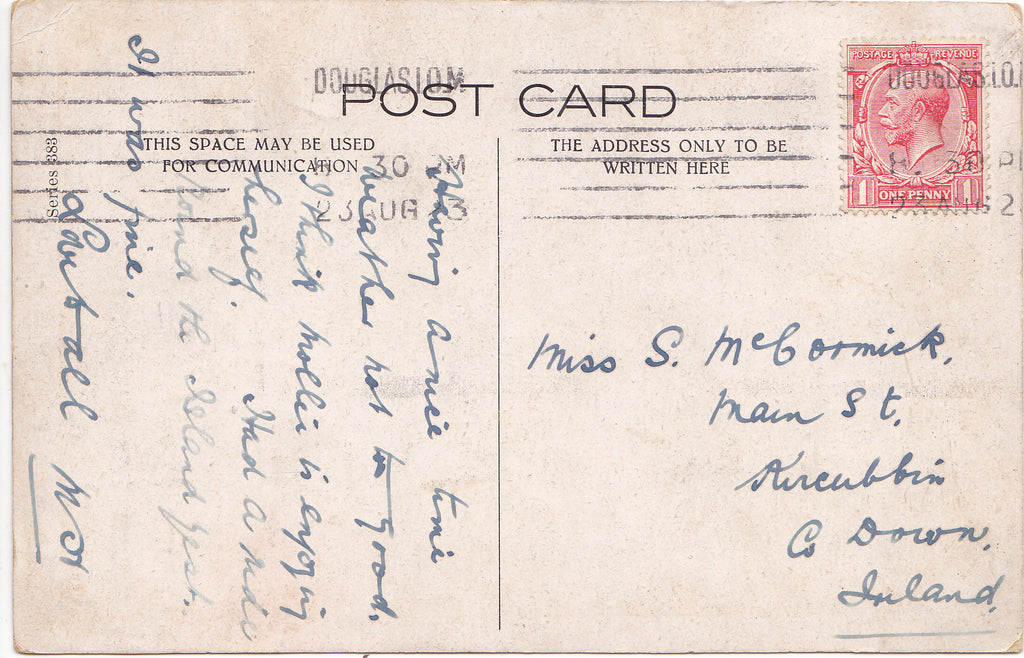 POST CARD
THIS SPACE MAY BE USED
FOR COMMUNICATION
THE ADDRESS ONLY TO BE
WRITTEN HERE
Series 383
DOUGLAS I.O.M
30 PM
23 AUG
DOUGLAS.I.O.
POSTAGE REVENUE
1 ONE PENNY 1
Having a nice time
weather not too good.
I think Mollie is enjoying
herself. Had a ride
round the Island yest.
It was fine.
Love to all
Miss S. McCormick,
Main St,
Kircubbin
Co Down,
Ireland,